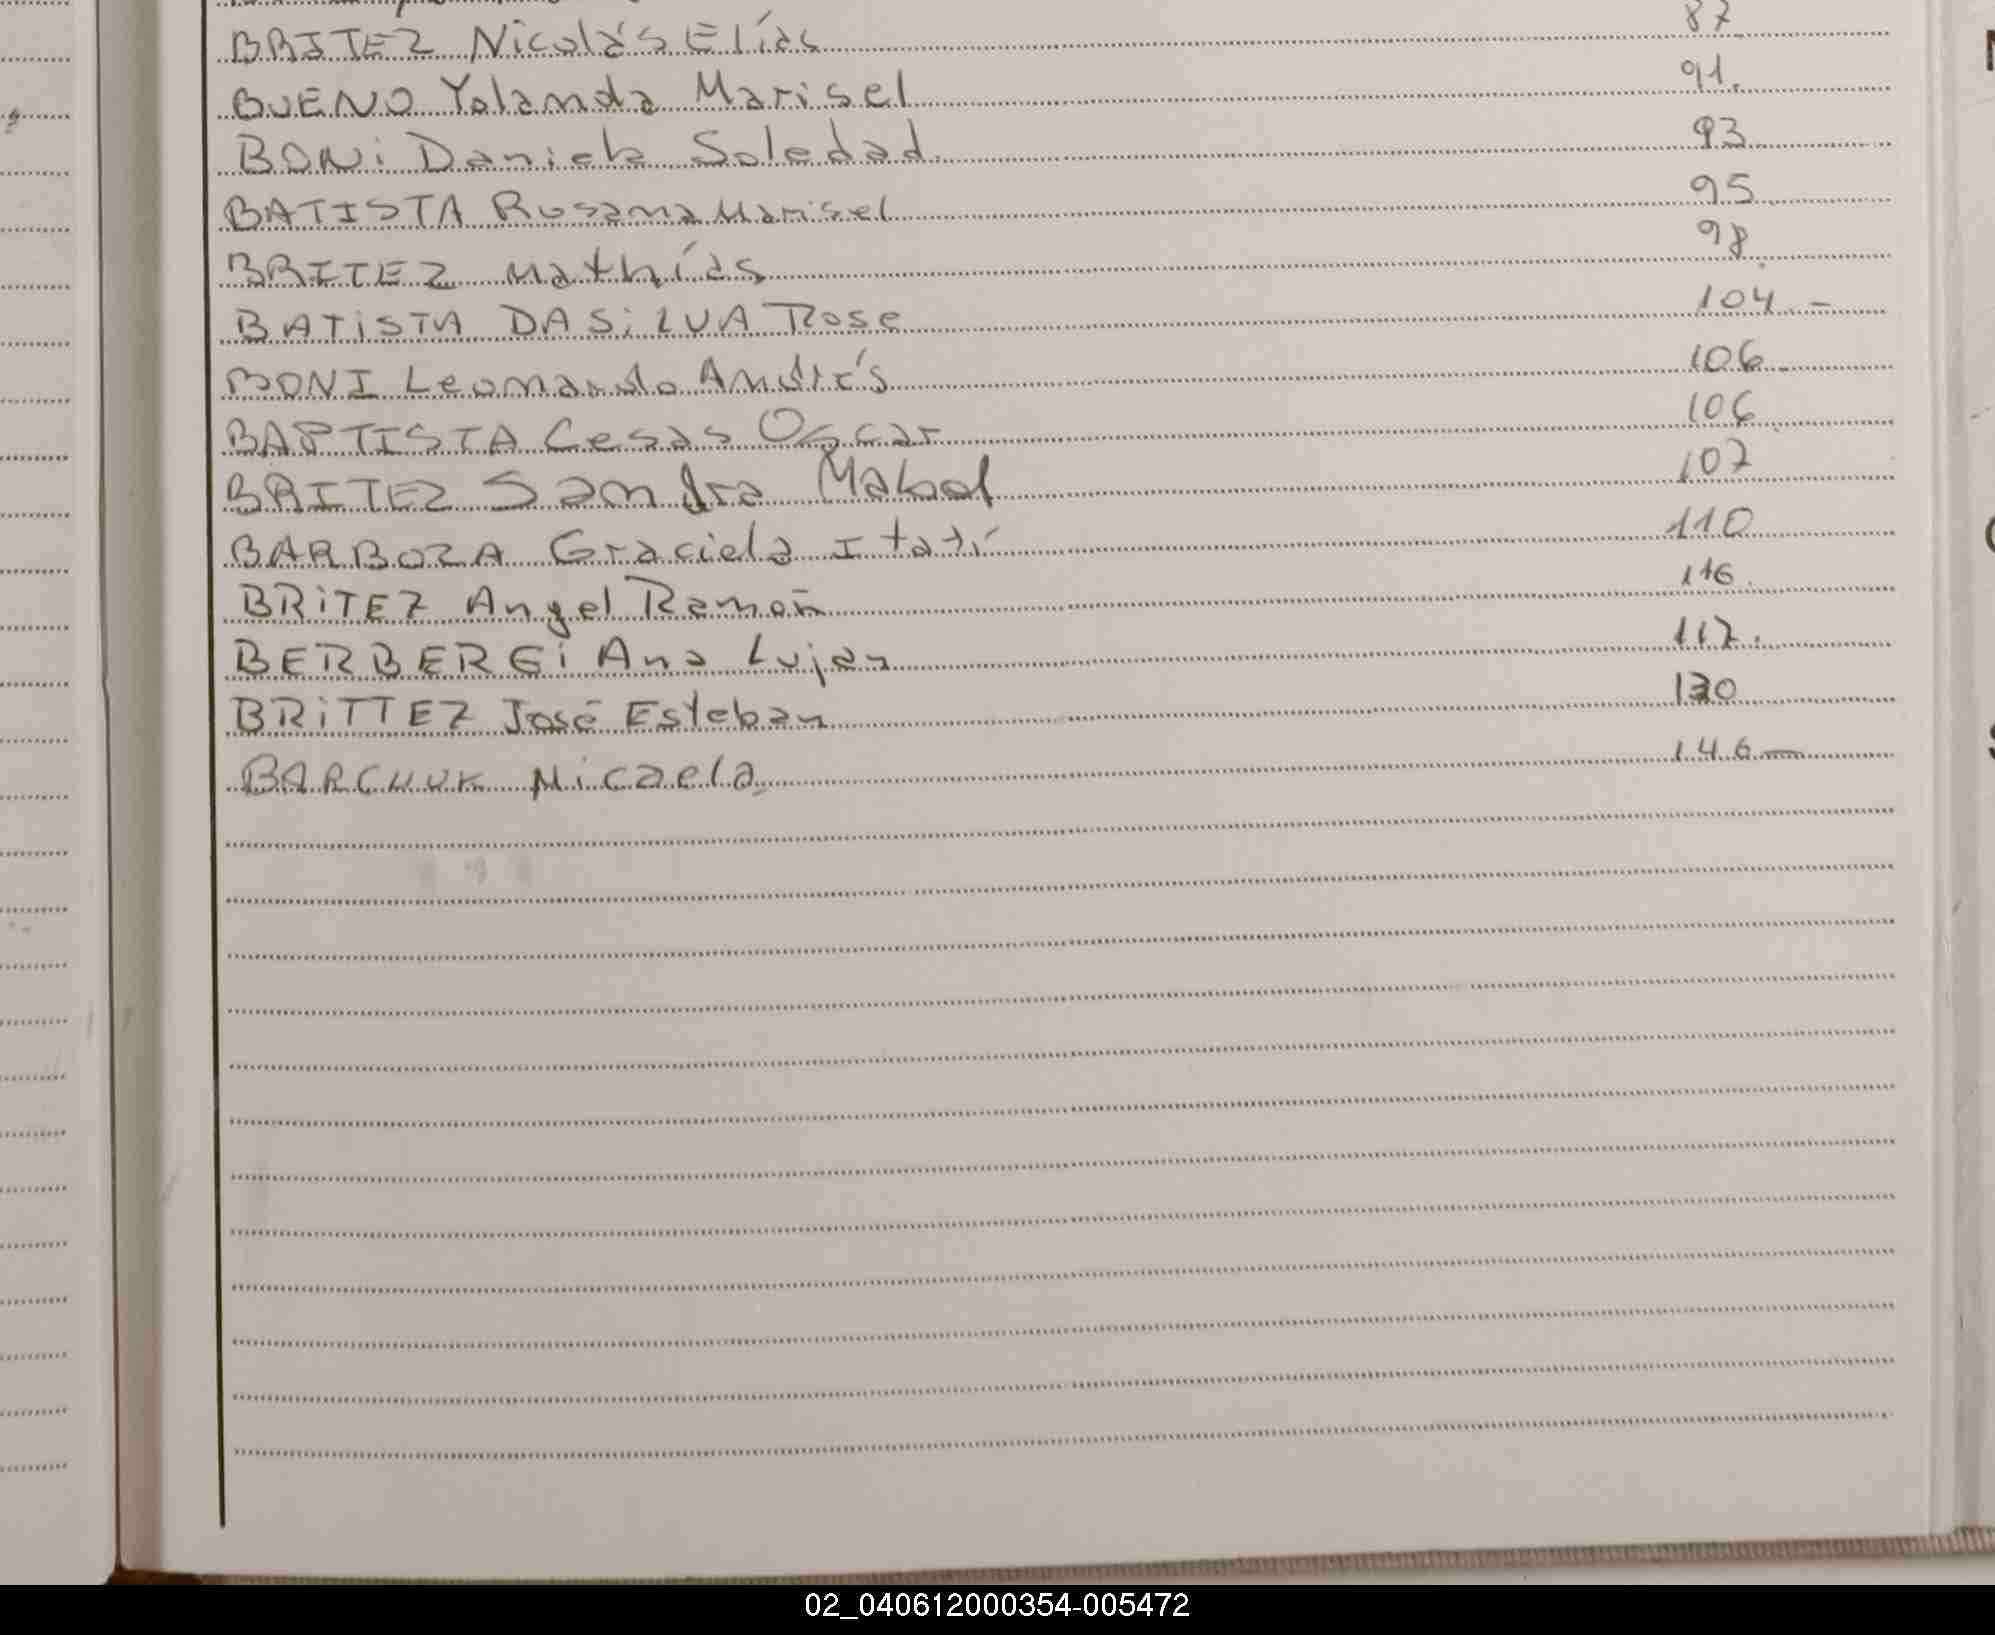 BRITEZ Nicolás Elías 87
BUENO Yolanda Marisel 91.
BONi Daniela Soledad. 93
BATISTA Rosana Marisel 95
BRITEZ Mathías 98.
BATiSTA DA SiLVA Rose 104.-
BONI Leonardo Andrés 106.
BAPTISTA Cesar Oscar 106
BRITEZ Sandra Mabel 107
BARBOZA Graciela Itatí 110
BRiTEZ Angel Ramón 116.
BERBERGi Ana Lujan 117.
BRiTTEZ José Esteban 130
BARCHUK Micaela 146—
02_040612000354-005472